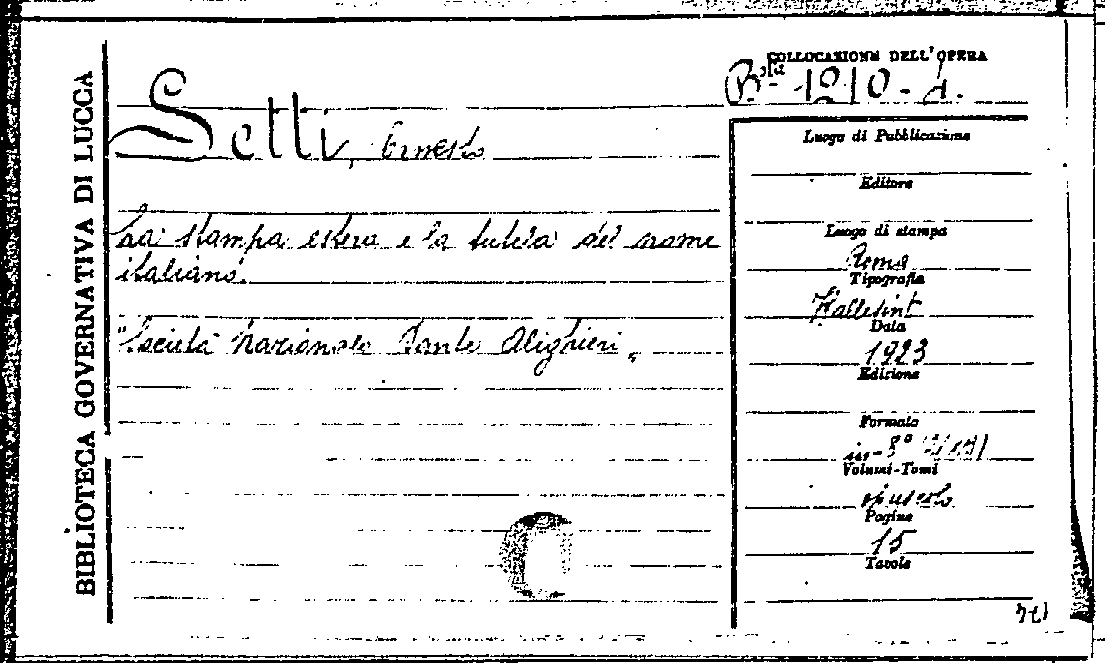 BIBLIOTECA GOVERNATIVA DI LUCCA
COLLOCAZIONE DELL'OPERA
B.sta 1210-4.
Setti, Ernesto
La stampa estera e la tutela del nome
italiano.
"Società Nazionale Dante Alighieri"
Luogo di Pubblicazione
Editore
Luogo di stampa
Roma
Tipografia
Data
1923
Edizione
Formato
in-8°
Volumi-Tomi
opuscolo
Pagine
15
Tavole